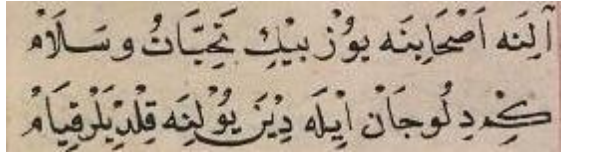 آلِنَه اَصْحَابِنَه يوُزْ بيْكْ تَحِيَّاتُ وسَلَامْ
كِمْ دِلُوجَانْ اٖيلَه دٖينْ يُولِنَه قِلْدِيلَرْ قِيَامْ